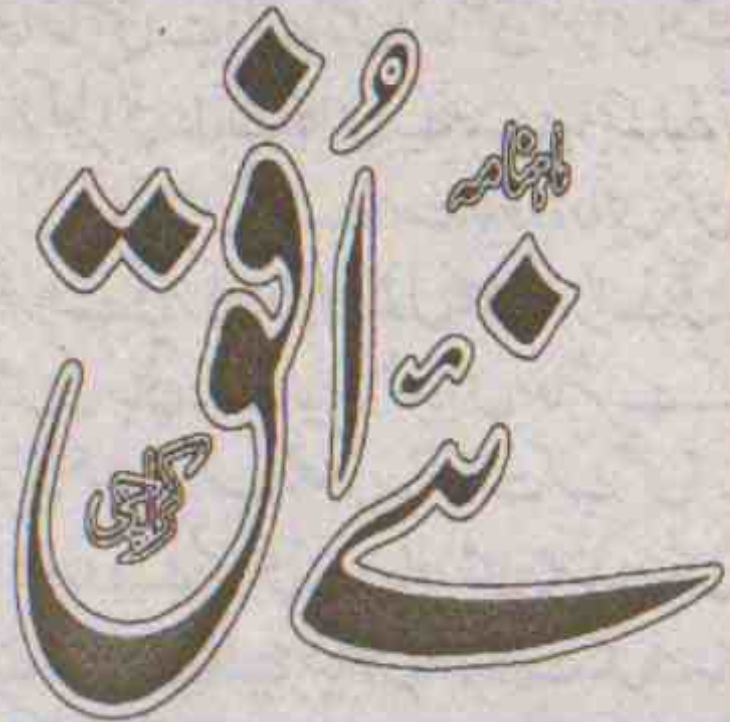 ماہنامہ
نئے اُفق
کراچی